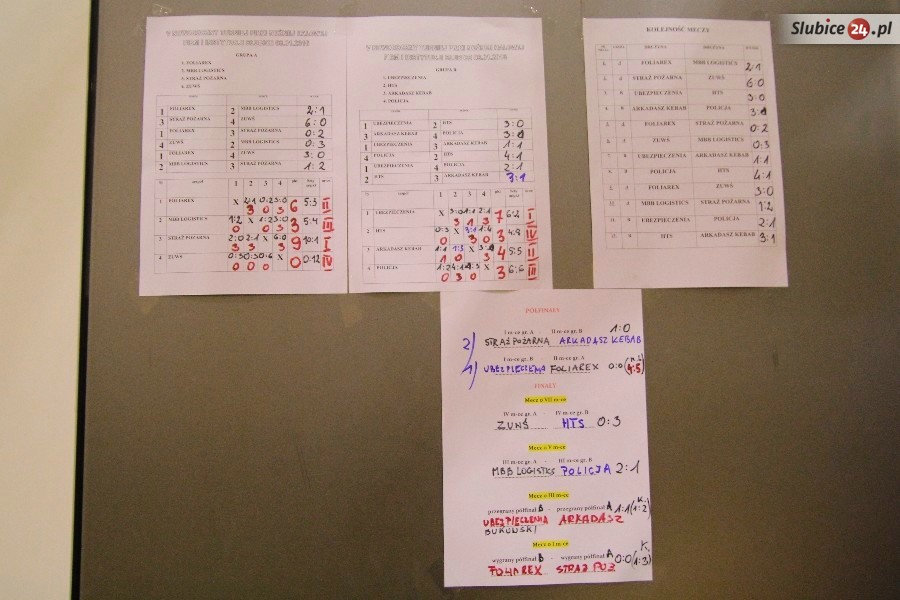 Slubice24.pl
GRUPA A
1. FOLIAREX
2. MBB LOGISTICS
3. STRAŻ POŻARNA
4. ZUWŚ
1 FOLIAREX 2 MBB LOGISTICS 2:1
3 STRAŻ POŻARNA 4 ZUWŚ 6:0
1 FOLIAREX 3 STRAŻ POŻARNA 0:2
4 ZUWŚ 2 MBB LOGISTICS 0:3
1 FOLIAREX 4 ZUWŚ 3:0
2 MBB LOGISTICS 3 STRAŻ POŻARNA 1:2
1 2 3 4
1 FOLIAREX X 2:1 0:2 3:0 6 5:3 II
3 0 3
2 MBB LOGISTICS 1:2 X 1:2 3:0 3 5:4 III
0 0 3
3 STRAŻ POŻARNA 2:0 2:1 X 6:0 9 10:1 I
3 3 3
4 ZUWŚ 0:3 0:3 0:6 X 0 0:12 IV
0 0 0
GRUPA B
1. UBEZPIECZENIA
2. HTS
3. ARKADASZ KEBAB
4. POLICJA
1 UBEZPIECZENIA 2 HTS 3:0
3 ARKADASZ KEBAB 4 POLICJA
1 UBEZPIECZENIA 3 ARKADASZ KEBAB 1:1
4 POLICJA 2 HTS 4:1
1 UBEZPIECZENIA 4 POLICJA 2:1
2 HTS 3 ARKADASZ KEBAB 3:1
1 2 3 4
1 UBEZPIECZENIA X 3:0 1:1 2:1 7 6:2 I
3 1 3
2 HTS 0:3 X 3:1 1:4 3 4:8 IV
0 3 0
3 ARKADASZ KEBAB 1:1 1:3 X 4 5:5 II
1 0 3
4 POLICJA 1:2 4:1 X 3 6:6 III
0 3 0
KOLEJNOŚĆ MECZY
FOLIAREX MBB LOGISTICS 2:1
STRAŻ POŻARNA ZUWŚ 6:0
UBEZPIECZENIA HTS 3:0
ARKADASZ KEBAB POLICJA
FOLIAREX STRAŻ POŻARNA 0:2
ZUWŚ MBB LOGISTICS 0:3
UBEZPIECZENIA ARKADASZ KEBAB 1:1
POLICJA HTS 4:1
FOLIAREX ZUWŚ 3:0
MBB LOGISTICS STRAŻ POŻARNA 1:2
UBEZPIECZENIA POLICJA 2:1
HTS ARKADASZ KEBAB 3:1
PÓŁFINAŁY
I m-ce gr. A - II m-ce gr. B 1:0
2) STRAŻ POŻARNA ARKADASZ KEBAB
I m-ce gr. B - II m-ce gr. A
1) UBEZPIECZENIA FOLIAREX 0:0
FINAŁY
Mecz o VII m-ce
IV m-ce gr. A - IV m-ce gr. B
ZUWŚ HTS 0:3
Mecz o V m-ce
III m-ce gr. A - III m-ce gr. B
MBB LOGISTICS POLICJA 2:1
Mecz o III m-ce
przegrany półfinał B - przegrany półfinał A 1:1 (1:2) K.
UBEZPIECZENIA ARKADASZ
BUROWSKI
Mecz o I m-ce
wygrany półfinał B - wygrany półfinał A 0:0 (1:3) K.
FOLIAREX STRAŻ POŻ